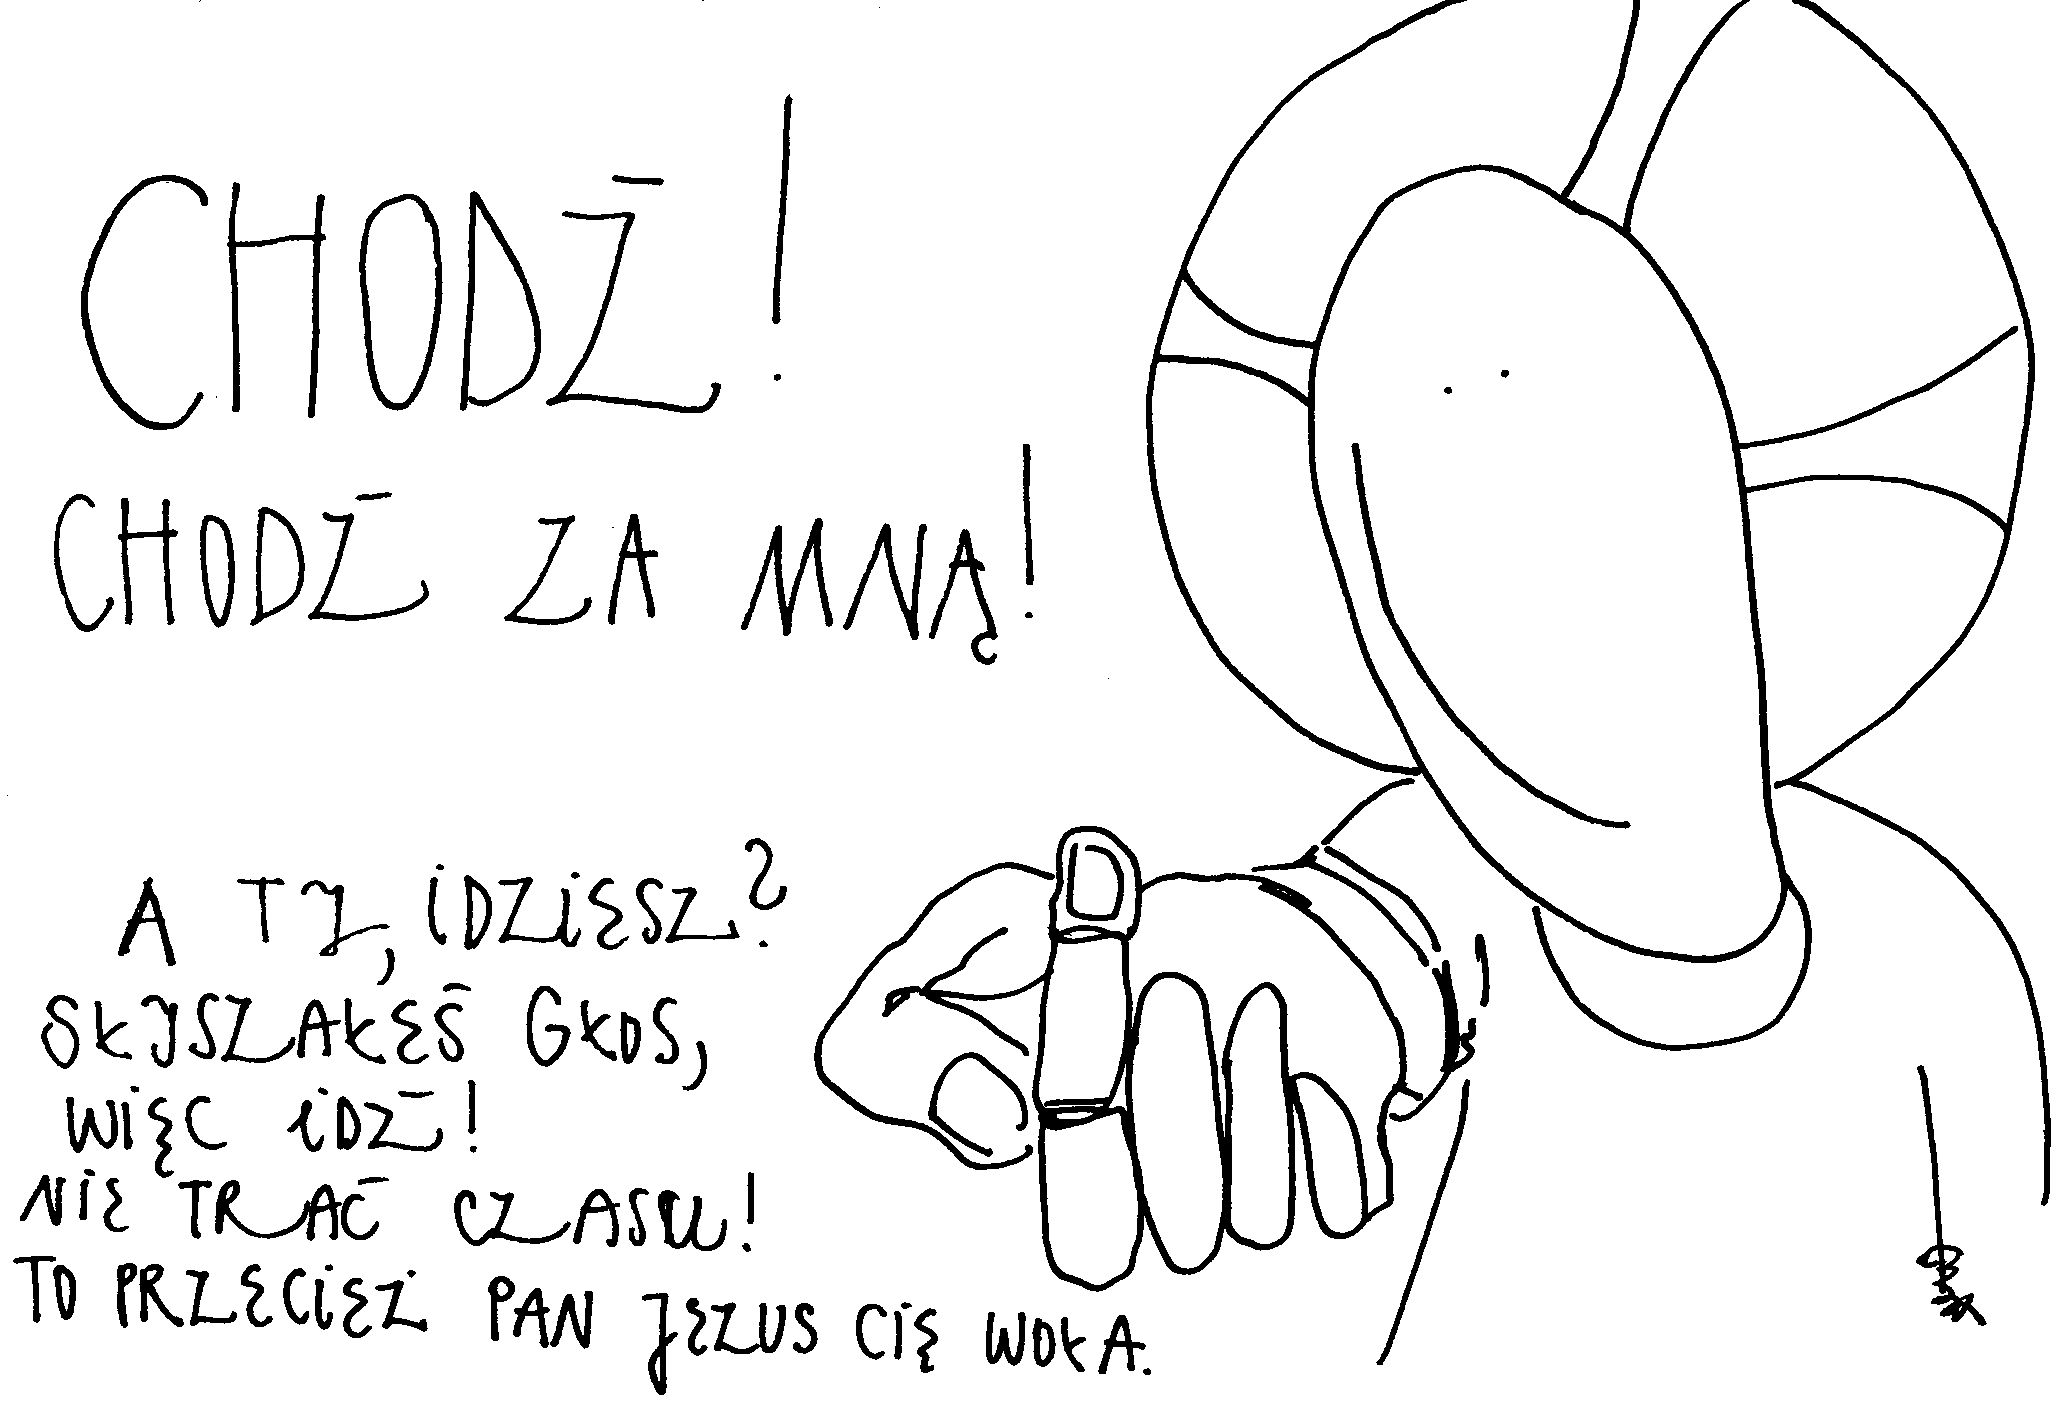 CHODŹ!
CHODŹ ZA MNĄ!
A TY, IDZIESZ?
SŁYSZAŁEŚ GŁOS,
WIĘC IDŹ!
NIE TRAĆ CZASU!
TO PRZECIEŻ PAN JEZUS CIĘ WOŁA.